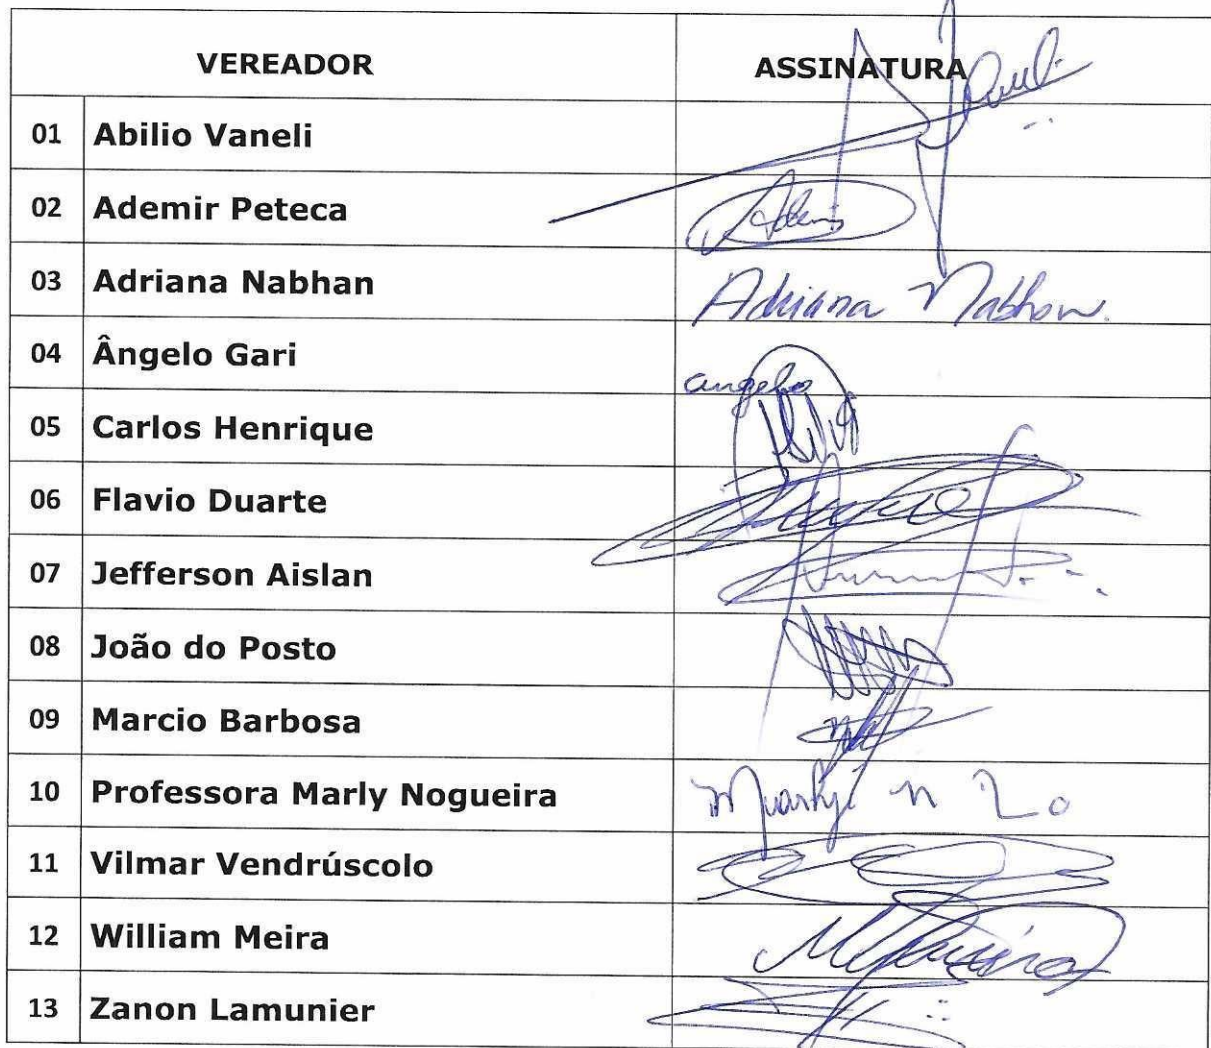 VEREADOR ASSINATURA
01 Abilio Vaneli
02 Ademir Peteca
03 Adriana Nabhan Adriana Nabhan.
04 Ângelo Gari angelo
05 Carlos Henrique
06 Flavio Duarte
07 Jefferson Aislan
08 João do Posto
09 Marcio Barbosa
10 Professora Marly Nogueira
11 Vilmar Vendrúscolo
12 William Meira
13 Zanon Lamunier